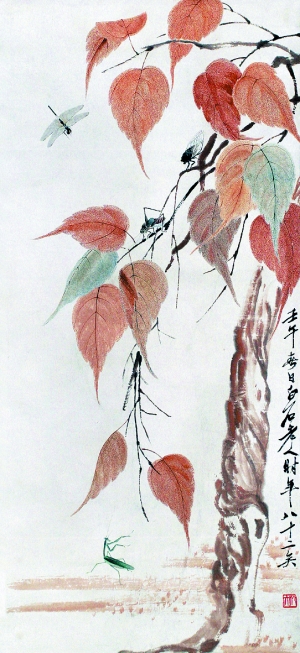 壬午春日白石老人时年八十二矣